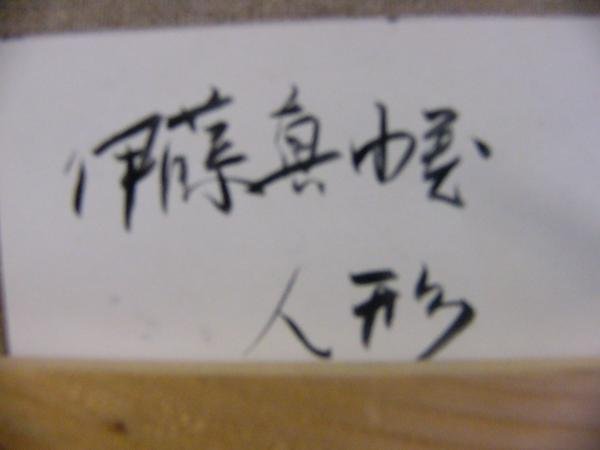 伊藤真由美
人形